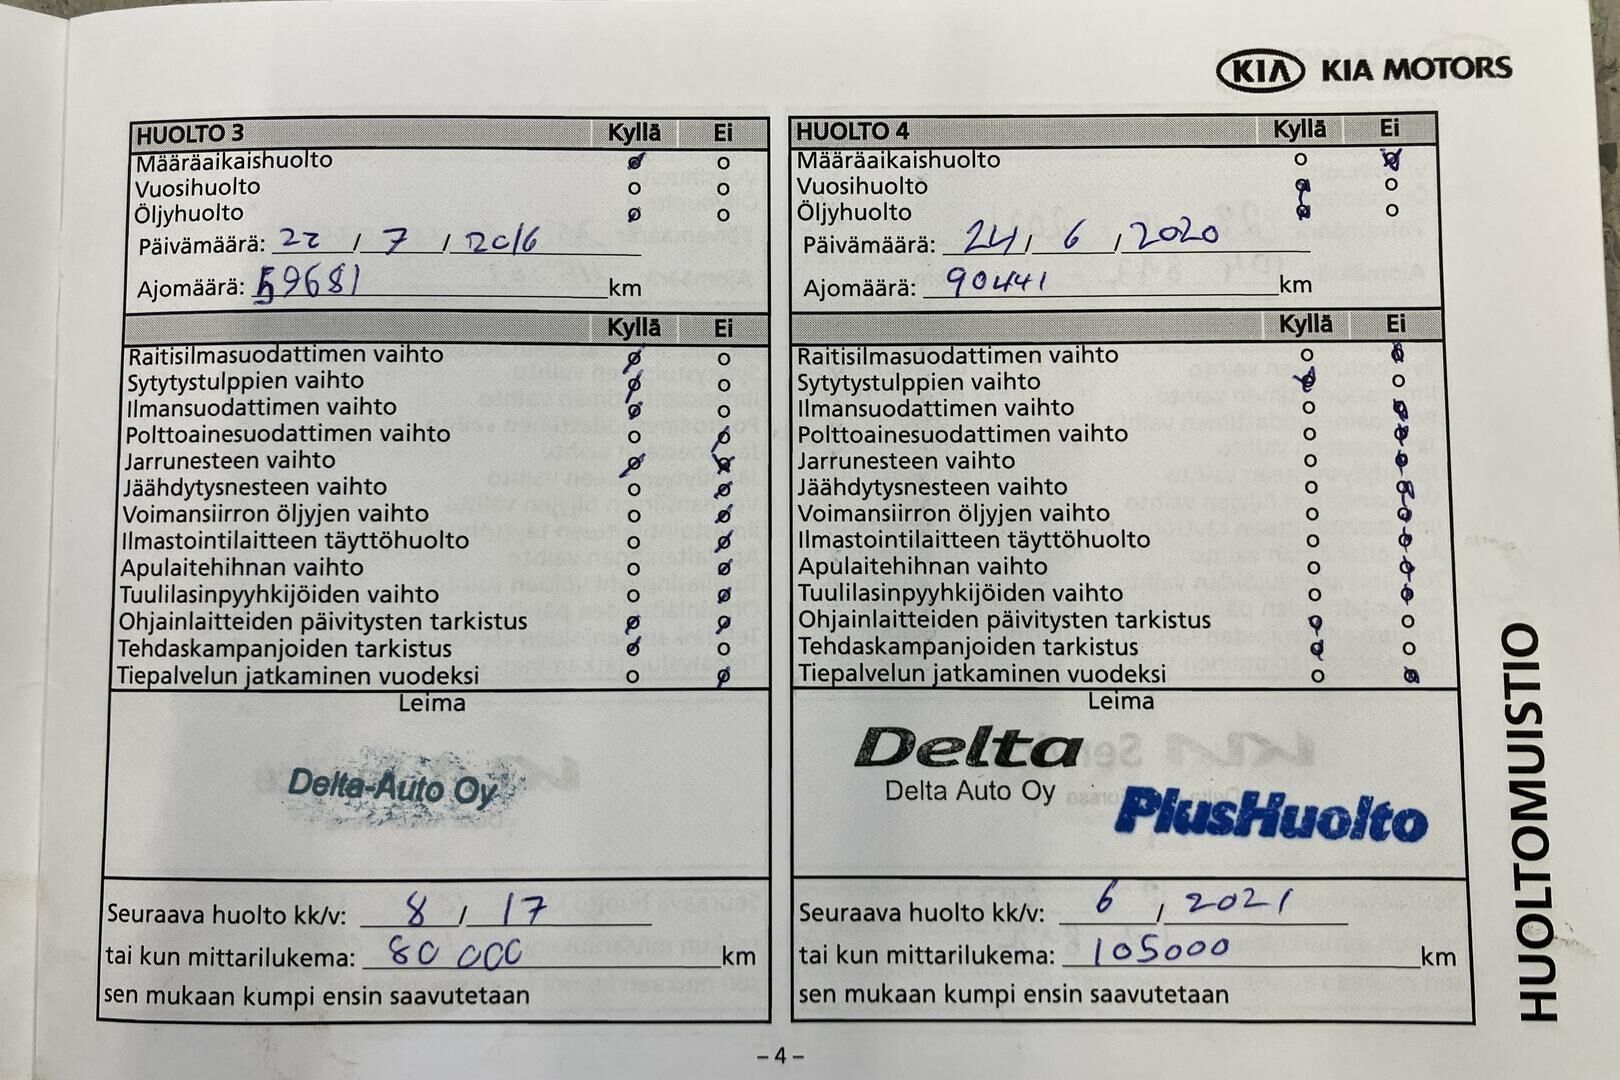 KIA KIA MOTORS
HUOLTO 3 Kyllä Ei
Määräaikaishuolto
Vuosihuolto
Öljyhuolto
Päivämäärä: 22 / 7 / 2016
Ajomäärä: 59681 km
Kyllä Ei
Raitisilmasuodattimen vaihto
Sytytystulppien vaihto
Ilmansuodattimen vaihto
Polttoainesuodattimen vaihto
Jarrunesteen vaihto
Jäähdytysnesteen vaihto
Voimansiirron öljyjen vaihto
Ilmastointilaitteen täyttöhuolto
Apulaitehihnan vaihto
Tuulilasinpyyhkijöiden vaihto
Ohjainlaitteiden päivitysten tarkistus
Tehdaskampanjoiden tarkistus
Tiepalvelun jatkaminen vuodeksi
Leima
Delta-Auto Oy
Seuraava huolto kk/v: 8 / 17
tai kun mittarilukema: 80 000 km
sen mukaan kumpi ensin saavutetaan
HUOLTO 4 Kyllä Ei
Määräaikaishuolto
Vuosihuolto
Öljyhuolto
Päivämäärä: 24 / 6 / 2020
Ajomäärä: 90441 km
Kyllä Ei
Raitisilmasuodattimen vaihto
Sytytystulppien vaihto
Ilmansuodattimen vaihto
Polttoainesuodattimen vaihto
Jarrunesteen vaihto
Jäähdytysnesteen vaihto
Voimansiirron öljyjen vaihto
Ilmastointilaitteen täyttöhuolto
Apulaitehihnan vaihto
Tuulilasinpyyhkijöiden vaihto
Ohjainlaitteiden päivitysten tarkistus
Tehdaskampanjoiden tarkistus
Tiepalvelun jatkaminen vuodeksi
Leima
Delta
Delta Auto Oy
PlusHuolto
Seuraava huolto kk/v: 6 / 2021
tai kun mittarilukema: 105000 km
sen mukaan kumpi ensin saavutetaan
HUOLTOMUISTIO
– 4 –